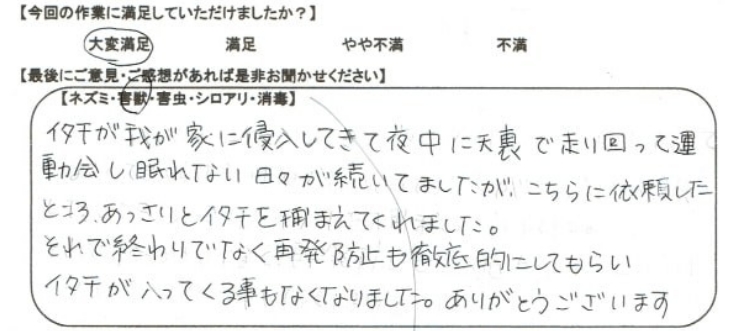 【今回の作業に満足していただけましたか？】
大変満足 満足 やや不満 不満
【最後にご意見・ご感想があれば是非お聞かせください】
【ネズミ・害獣・害虫・シロアリ・消毒】
イタチが我が家に侵入してきて夜中に天裏で走り回って運
動会し眠れない日々が続いてましたが、こちらに依頼した
ところ、あっさりとイタチを捕まえてくれました。
それで終わりでなく再発防止も徹底的にしてもらい
イタチが入ってくる事もなくなりました。ありがとうございます